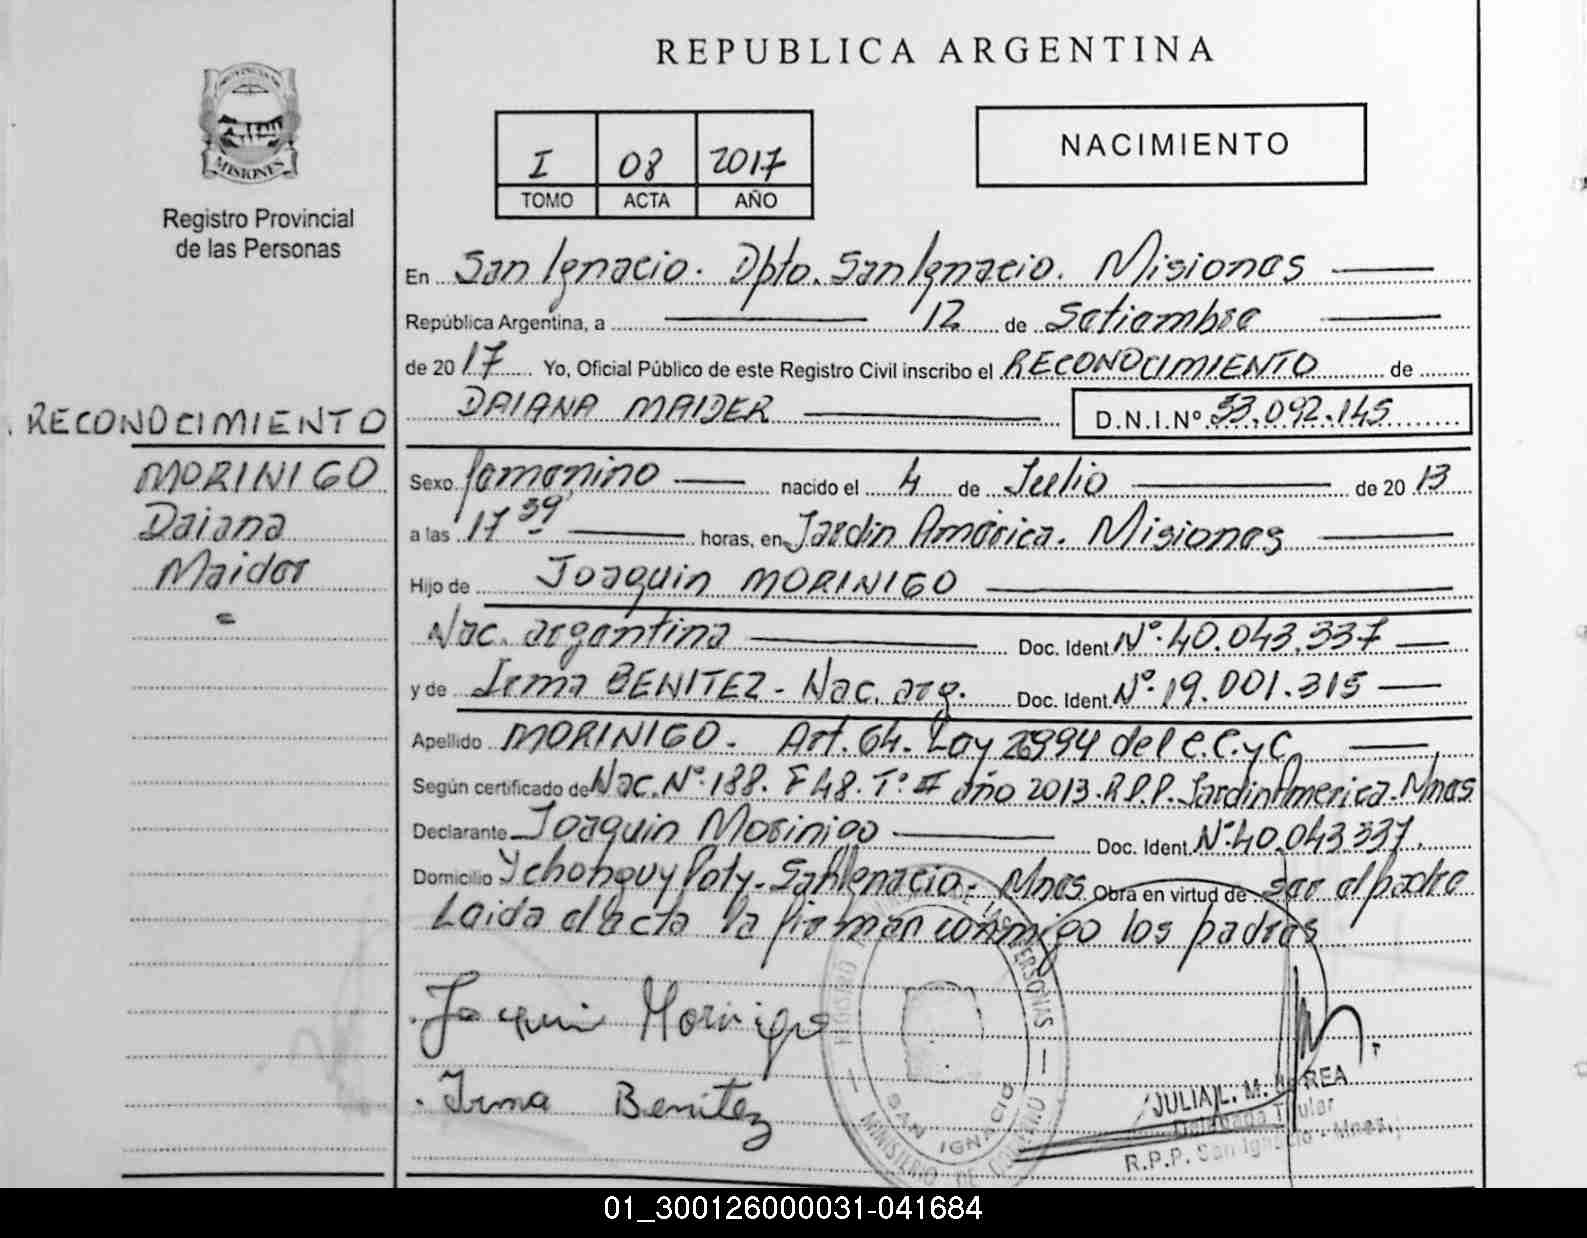 REPUBLICA ARGENTINA
MISIONES
Registro Provincial
de las Personas
I 08 2017
TOMO ACTA AÑO
NACIMIENTO
En San Ignacio. Dpto. San Ignacio. Misiones
República Argentina, a 12 de Setiembre
de 2017 Yo, Oficial Público de este Registro Civil inscribo el RECONOCIMIENTO de
DAIANA MAIDER D.N.I.Nº 53.092.145
RECONOCIMIENTO
MORINIGO
Daiana
Maider
Sexo femenino nacido el 4 de Julio de 2013
a las 17 39 horas, en Jardin América. Misiones
Hijo de Joaquin MORINIGO
Nac. argentina Doc. Ident. Nº 40.043.337
y de Irma BENITEZ - Nac. arg. Doc. Ident. Nº 19.001.315
Apellido MORINIGO. Art. 64. Ley 26994 del C.C.y C.
Según certificado de Nac. Nº 188. F 48. Tº II año 2013. R.P.P. Jardin America. Mnes
Declarante Joaquin Morinigo Doc. Ident. Nº 40.043.337.
Domicilio Poty. San Ignacio. Mnes Obra en virtud de ser el padre
Leida el acta la firman conmigo los padres
Joaquin Morinigo
Irma Benitez
REGISTRO DE LAS PERSONAS
SAN IGNACIO
MINISTERIO DE GOBIERNO
JULIA L. M.
Delegada Titular
R.P.P. San Ignacio - Mnes.
01_300126000031-041684